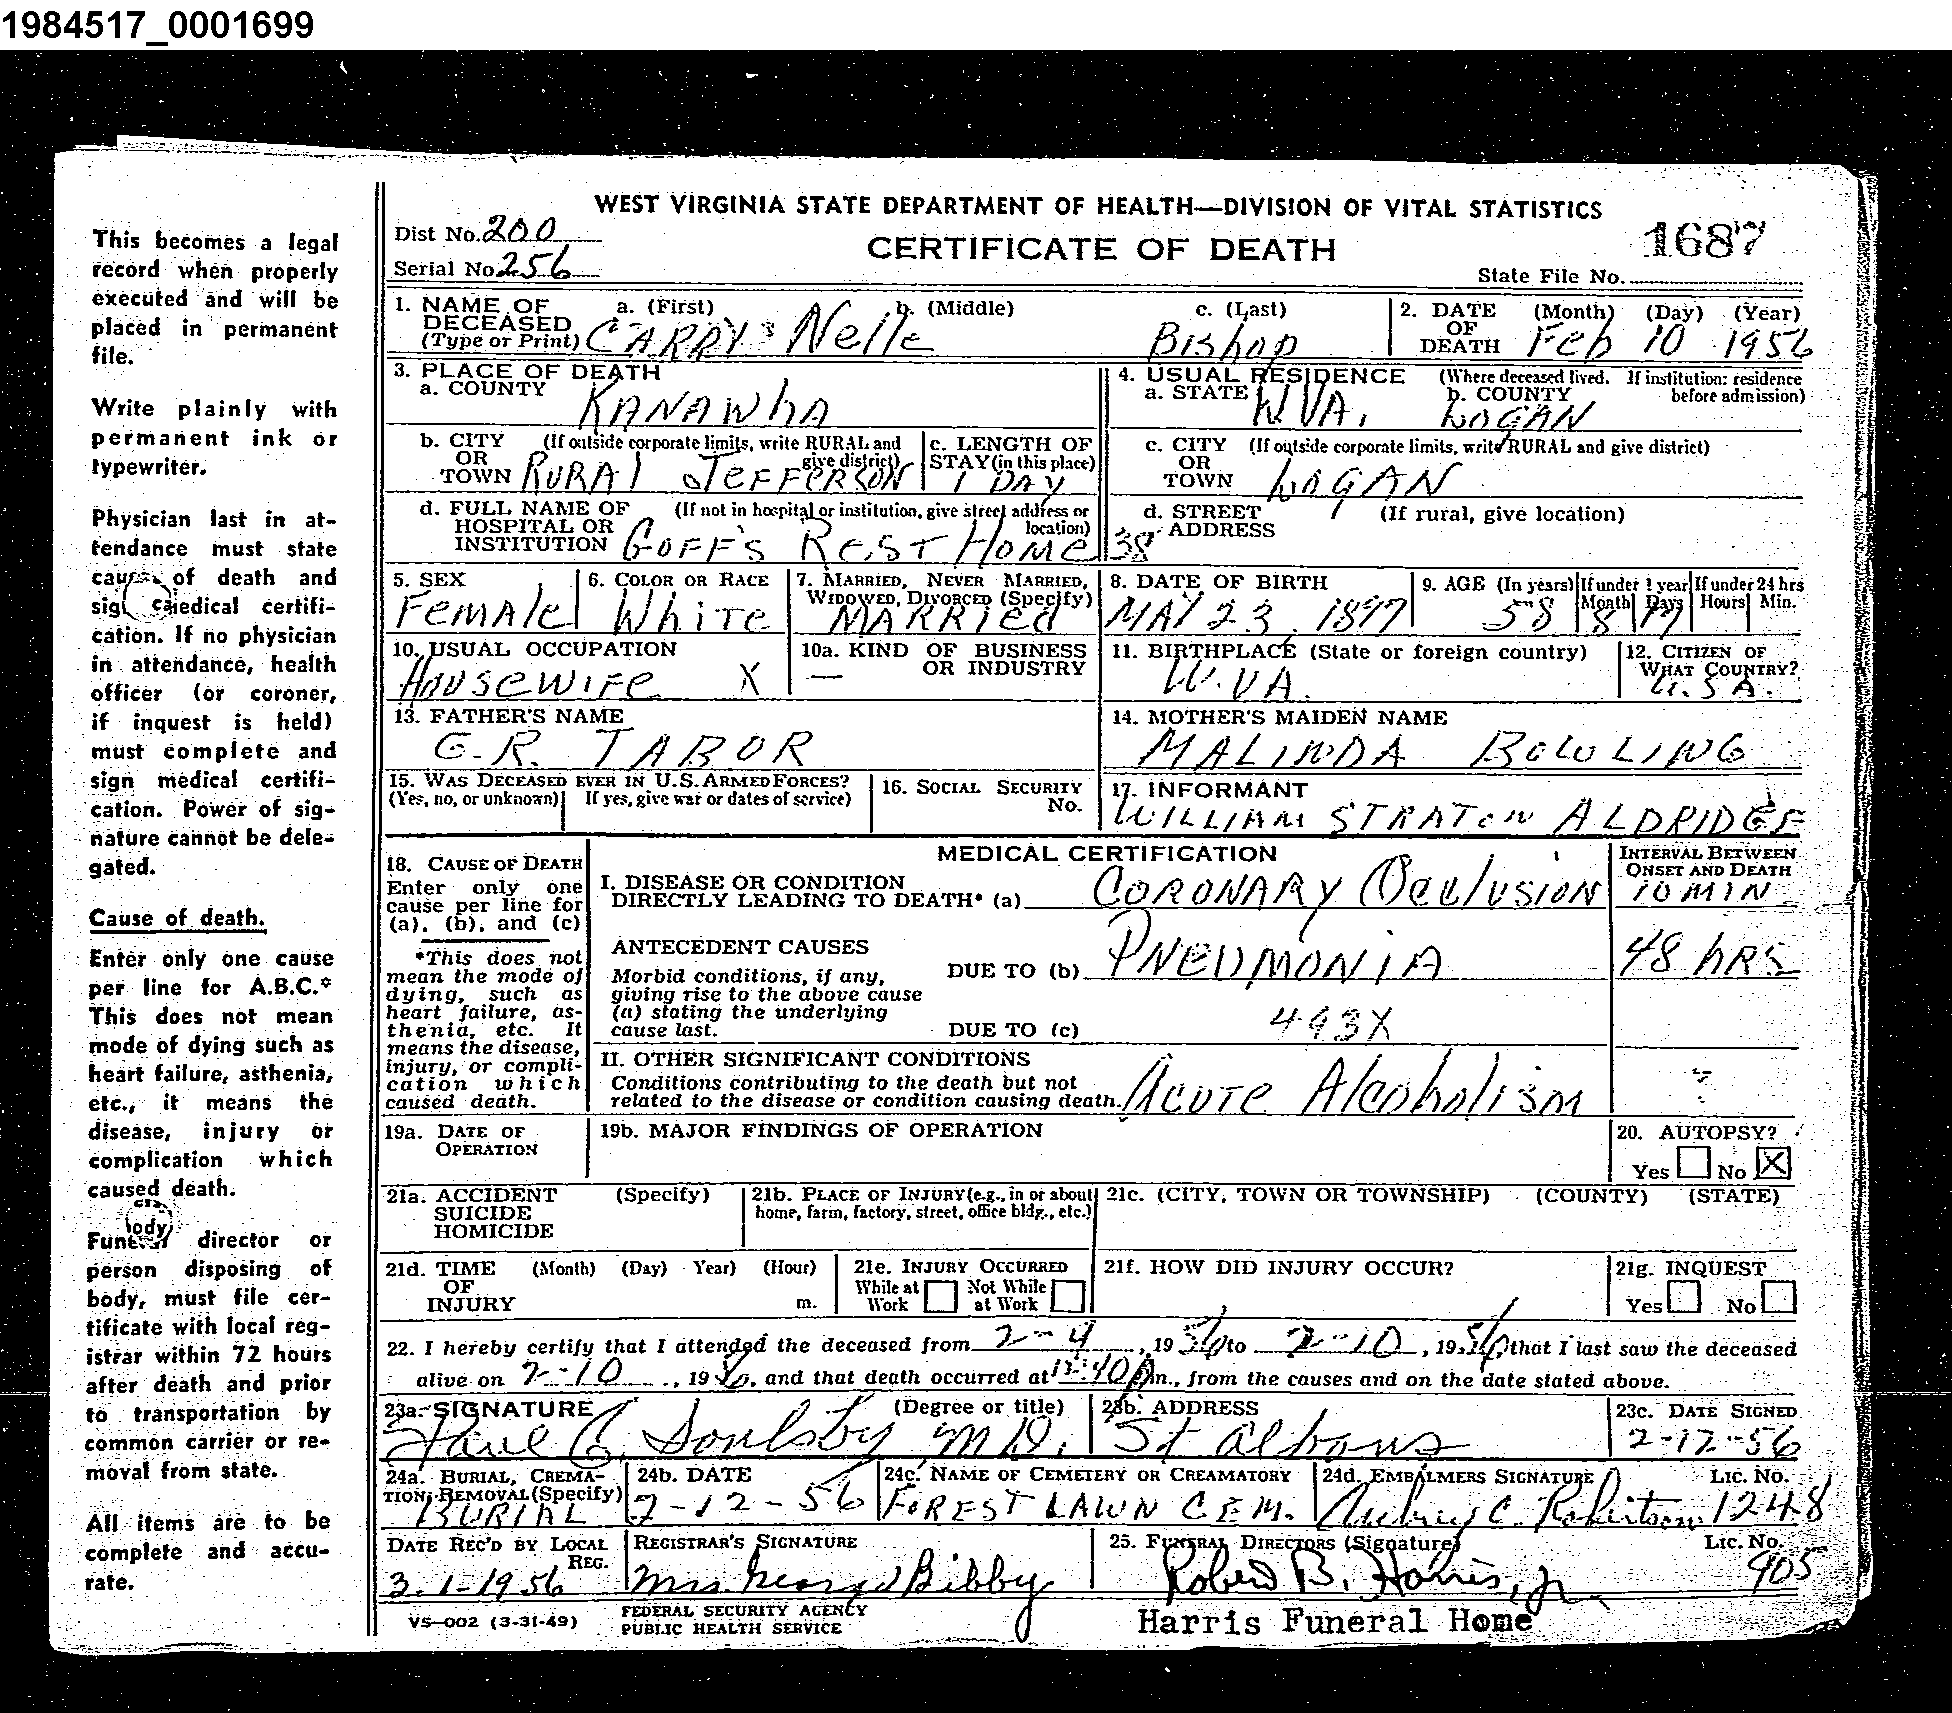 1984517_0001699
WEST VIRGINIA STATE DEPARTMENT OF HEALTH—DIVISION OF VITAL STATISTICS
Dist No. 200
Serial No 256
CERTIFICATE OF DEATH
1687
State File No.
1. NAME OF DECEASED (Type or Print) a. (First) b. (Middle) c. (Last)
CARRY Nelle Bishop
2. DATE OF DEATH (Month) (Day) (Year)
Feb 10 1956
3. PLACE OF DEATH
a. COUNTY KANAWhA
4. USUAL RESIDENCE (Where deceased lived. If institution: residence before admission)
a. STATE W.VA. b. COUNTY LOGAN
b. CITY OR TOWN (If outside corporate limits, write RURAL and give district) RURAL JEFFERSON
c. LENGTH OF STAY (in this place) 1 DAY
c. CITY OR TOWN (If outside corporate limits, write RURAL and give district) LOGAN
d. FULL NAME OF HOSPITAL OR INSTITUTION (If not in hospital or institution, give street address or location) GOFF'S REST HOME
d. STREET ADDRESS (If rural, give location) 38
5. SEX Female
6. COLOR OR RACE White
7. MARRIED, NEVER MARRIED, WIDOWED, DIVORCED (Specify) MARRIED
8. DATE OF BIRTH MAY 23, 1897
9. AGE (In years) 58 If under 1 year Month 8 Days 17 If under 24 hrs Hours Min.
10. USUAL OCCUPATION HOUSEWIFE X
10a. KIND OF BUSINESS OR INDUSTRY —
11. BIRTHPLACE (State or foreign country) W.VA.
12. CITIZEN OF WHAT COUNTRY? U.S.A.
13. FATHER'S NAME G.R. TABOR
14. MOTHER'S MAIDEN NAME MALINDA BOWLING
15. WAS DECEASED EVER IN U.S. ARMED FORCES? (Yes, no, or unknown) If yes, give war or dates of service)
16. SOCIAL SECURITY No.
17. INFORMANT WILLIAM STRATON ALDRIDGE
MEDICAL CERTIFICATION
18. CAUSE OF DEATH
Enter only one cause per line for (a), (b), and (c)
*This does not mean the mode of dying, such as heart failure, asthenia, etc. It means the disease, injury, or complication which caused death.
I. DISEASE OR CONDITION DIRECTLY LEADING TO DEATH* (a) CORONARY OCCLUSION
INTERVAL BETWEEN ONSET AND DEATH 10 MIN
ANTECEDENT CAUSES
Morbid conditions, if any, giving rise to the above cause (a) stating the underlying cause last.
DUE TO (b) PNEUMONIA 48 HRS
DUE TO (c) 493X
II. OTHER SIGNIFICANT CONDITIONS
Conditions contributing to the death but not related to the disease or condition causing death. Acute Alcoholism
19a. DATE OF OPERATION
19b. MAJOR FINDINGS OF OPERATION
20. AUTOPSY? Yes No X
21a. ACCIDENT SUICIDE HOMICIDE (Specify)
21b. PLACE OF INJURY (e.g., in or about home, farm, factory, street, office bldg., etc.)
21c. (CITY, TOWN OR TOWNSHIP) (COUNTY) (STATE)
21d. TIME OF INJURY (Month) (Day) Year) (Hour) m.
21e. INJURY OCCURRED While at Work Not While at Work
21f. HOW DID INJURY OCCUR?
21g. INQUEST Yes No
22. I hereby certify that I attended the deceased from 2-4, 1956 to 2-10, 1956, that I last saw the deceased
alive on 2-10, 1956, and that death occurred at 12:40 Pm., from the causes and on the date stated above.
23a. SIGNATURE (Degree or title) Paul C. Soulsby M.D.
23b. ADDRESS St Albans
23c. DATE SIGNED 2-12-56
24a. BURIAL, CREMATION, REMOVAL (Specify) BURIAL
24b. DATE 2-12-56
24c. NAME OF CEMETERY OR CREAMATORY FOREST LAWN CEM.
24d. EMBALMERS SIGNATURE LIC. NO. Aubrey C. Robertson 1248
DATE REC'D BY LOCAL REG. 3-1-1956
REGISTRAR'S SIGNATURE Mrs. Bibby
25. FUNERAL DIRECTORS (Signature) LIC. NO. Robert B. Harris, Jr. 905
VS—002 (3-31-49)
FEDERAL SECURITY AGENCY
PUBLIC HEALTH SERVICE
Harris Funeral Home
This becomes a legal
record when properly
executed and will be
placed in permanent
file.
Write plainly with
permanent ink or
typewriter.
Physician last in at-
tendance must state
cause of death and
sign medical certifi-
cation. If no physician
in attendance, health
officer (or coroner,
if inquest is held)
must complete and
sign medical certifi-
cation. Power of sig-
nature cannot be dele-
gated.
Cause of death.
Enter only one cause
per line for A.B.C.*
This does not mean
mode of dying such as
heart failure, asthenia,
etc., it means the
disease, injury or
complication which
caused death.
body
Funeral director or
person disposing of
body, must file cer-
tificate with local reg-
istrar within 72 hours
after death and prior
to transportation by
common carrier or re-
moval from state.
All items are to be
complete and accu-
rate.